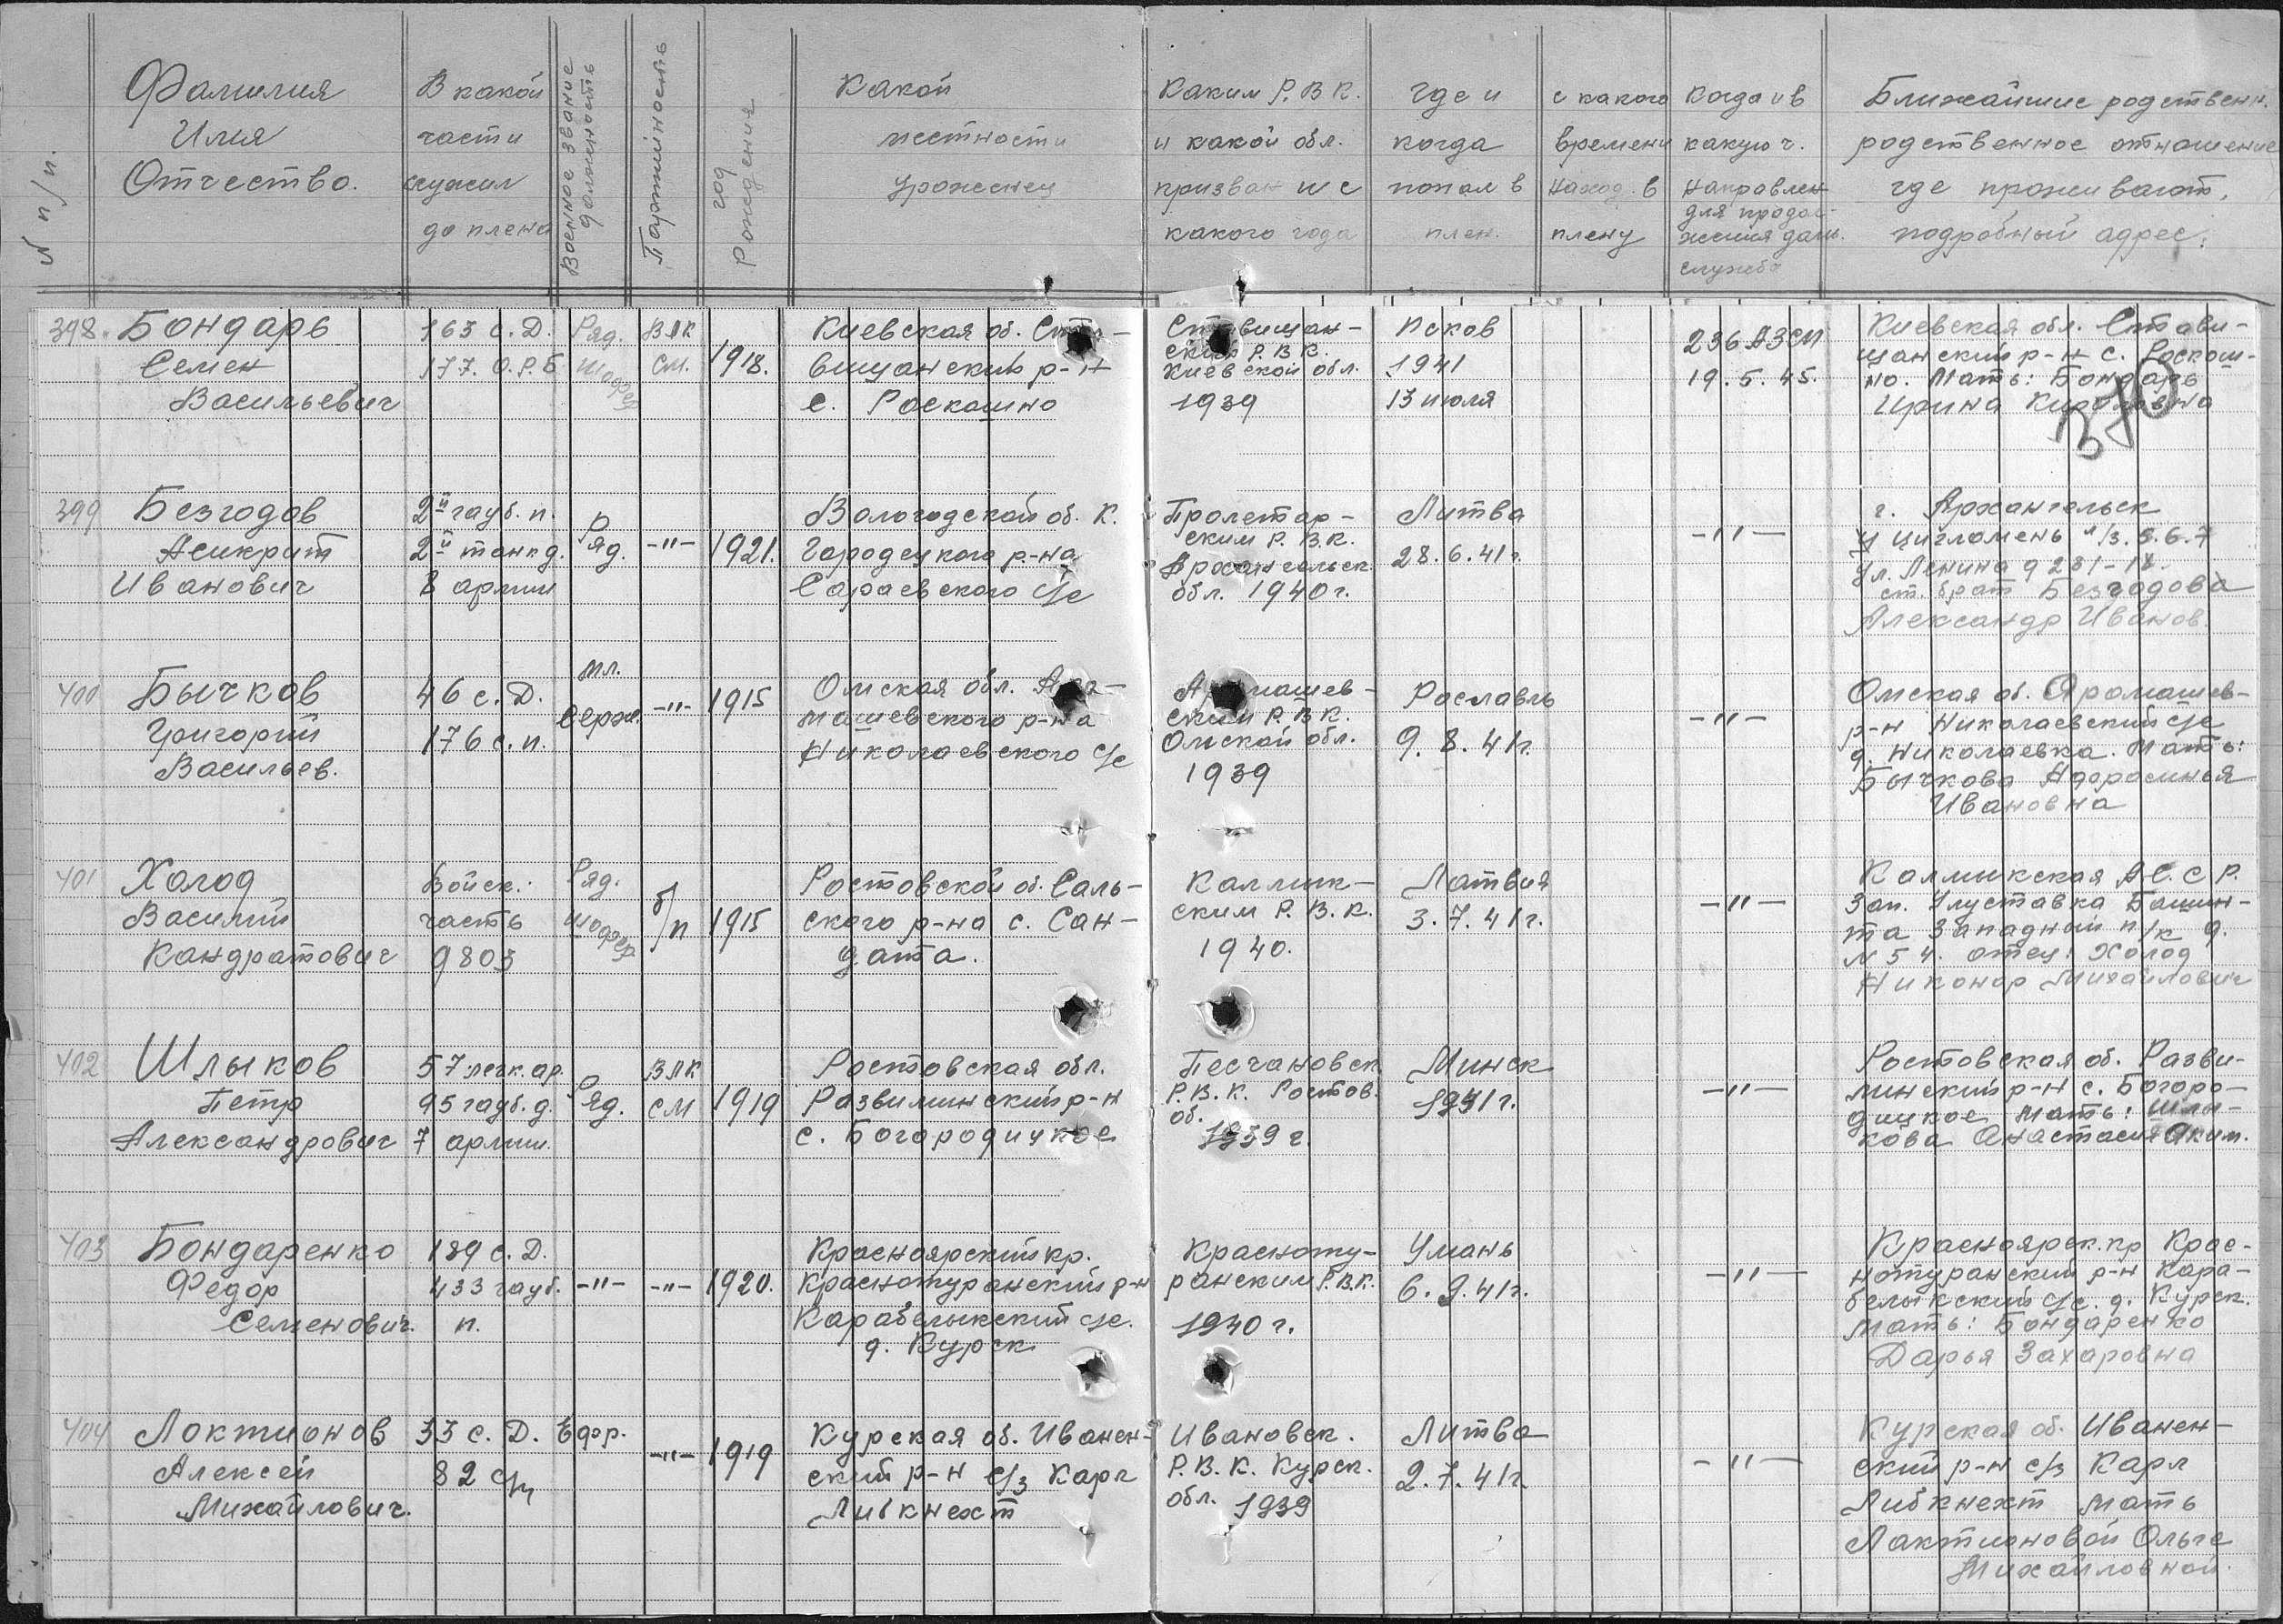 № п/п.
Фамилия
Имя
Отчество.
В какой
части
служил
до плена
Военное звание
должность
Партийность
год
Рождения
Какой
местности
уроженец
Каким Р.В.К.
и какой обл.
призван и с
какого года
Где и
когда
попал в
плен.
с какого
времени
наход. в
плену
Когда и в
какую ч.
направлен
для продол-
жения даль.
службы
Ближайшие родственн.
родственное отношение
где проживают,
подробный адрес.
398. Бондарь
Семен
Васильевич
163 с.Д.
177. О.Р.Б.
Ряд.
шофер
ВЛК
см.
1918.
Киевская об.
вищанский р-н
с. Роскашно
Ставищан-
ским Р.В.К.
Киевской обл.
1939
Псков
1941
13 июля
236 АЗСП
19.5.45.
Киевская обл. Стави-
щанский р-н с. Роскош-
но. Мать: Бондарь
Ирина
399 Безгодов
Асикрит
Иванович
2й гауб. п.
2й танк д.
8 армии
Ряд.
-"-
1921.
Вологодской об. К.
Городецкого р-на
Сараевского с/с
Пролетар-
ским Р.В.К.
Архангельск.
обл. 1940 г.
Литва
28.6.41 г.
-"-
г. Архангельск
ц Цигломень л/з. 5.6.7
ул. Ленина д 281-18.
ст. брат Безгодова
Александр Иванов.
400 Бычков
Григорий
Васильев.
46 с.Д.
176 с.п.
мл.
Серж.
-"-
1915
Омская обл.
машевского р-на
Николаевского с/с
Аромашев-
ским Р.В.К.
Омской обл.
1939
Рославль
9.8.41 г.
-"-
Омская об. Аромашев-
р-н Николаевский с/с
д. Николаевка. Мать:
Бычкова Афросинья
Ивановна
401 Холод
Василий
Кандратович
Войск.
часть
9803
Ряд.
шофер
б/п
1915
Ростовской об. Саль-
ского р-на с. Сан-
дата.
Калмык-
ским Р.В.К.
1940.
Латвия
3.7.41 г.
-"-
Калмыкская А.С.С.Р.
Зап. Улуставка Башан-
та Западный п/к д.
№ 54. отец: Холод
Никонор Михайлович
402 Шлыков
Петр
Александрович
57 легк. ар.
95 гауб. д.
7 армии.
Ряд.
ВЛК
СМ
1919
Ростовская обл.
Развилинский р-н
с. Богородицкое
Песчановск
Р.В.К. Ростов.
об.
1939 г.
Минск
1941 г.
-"-
Ростовская об. Разви-
линский р-н с. Богоро-
дицкое. Мать: Шлы-
кова Анастасия Аким.
403 Бондаренко
Федор
Семенович.
189 с.Д.
433 гауб.
п.
-"-
-"-
1920.
Красноярский кр.
Краснотуранский р-н
Карабелыкский с/с.
д. Курск
Красноту-
ранским Р.В.К.
1940 г.
Умань
6.9.41 г.
-"-
Красноярск. кр Крас-
нотуранский р-н Кара-
белыкский с/с. д. Курск.
Мать: Бондаренко
Дарья Захаровна
404 Локтионов
Алексей
Михайлович.
33 с.Д.
82 с/п
Ефр.
-"-
1919
Курская об. Иванен-
ский р-н с/з Карл
Либкнехт
Ивановск.
Р.В.К. Курск.
обл. 1939
Литва
2.7.41 г.
-"-
Курская об. Иванен-
ский р-н с/з Карл
Либкнехт Мать
Лактионовой Ольге
Михайловной.